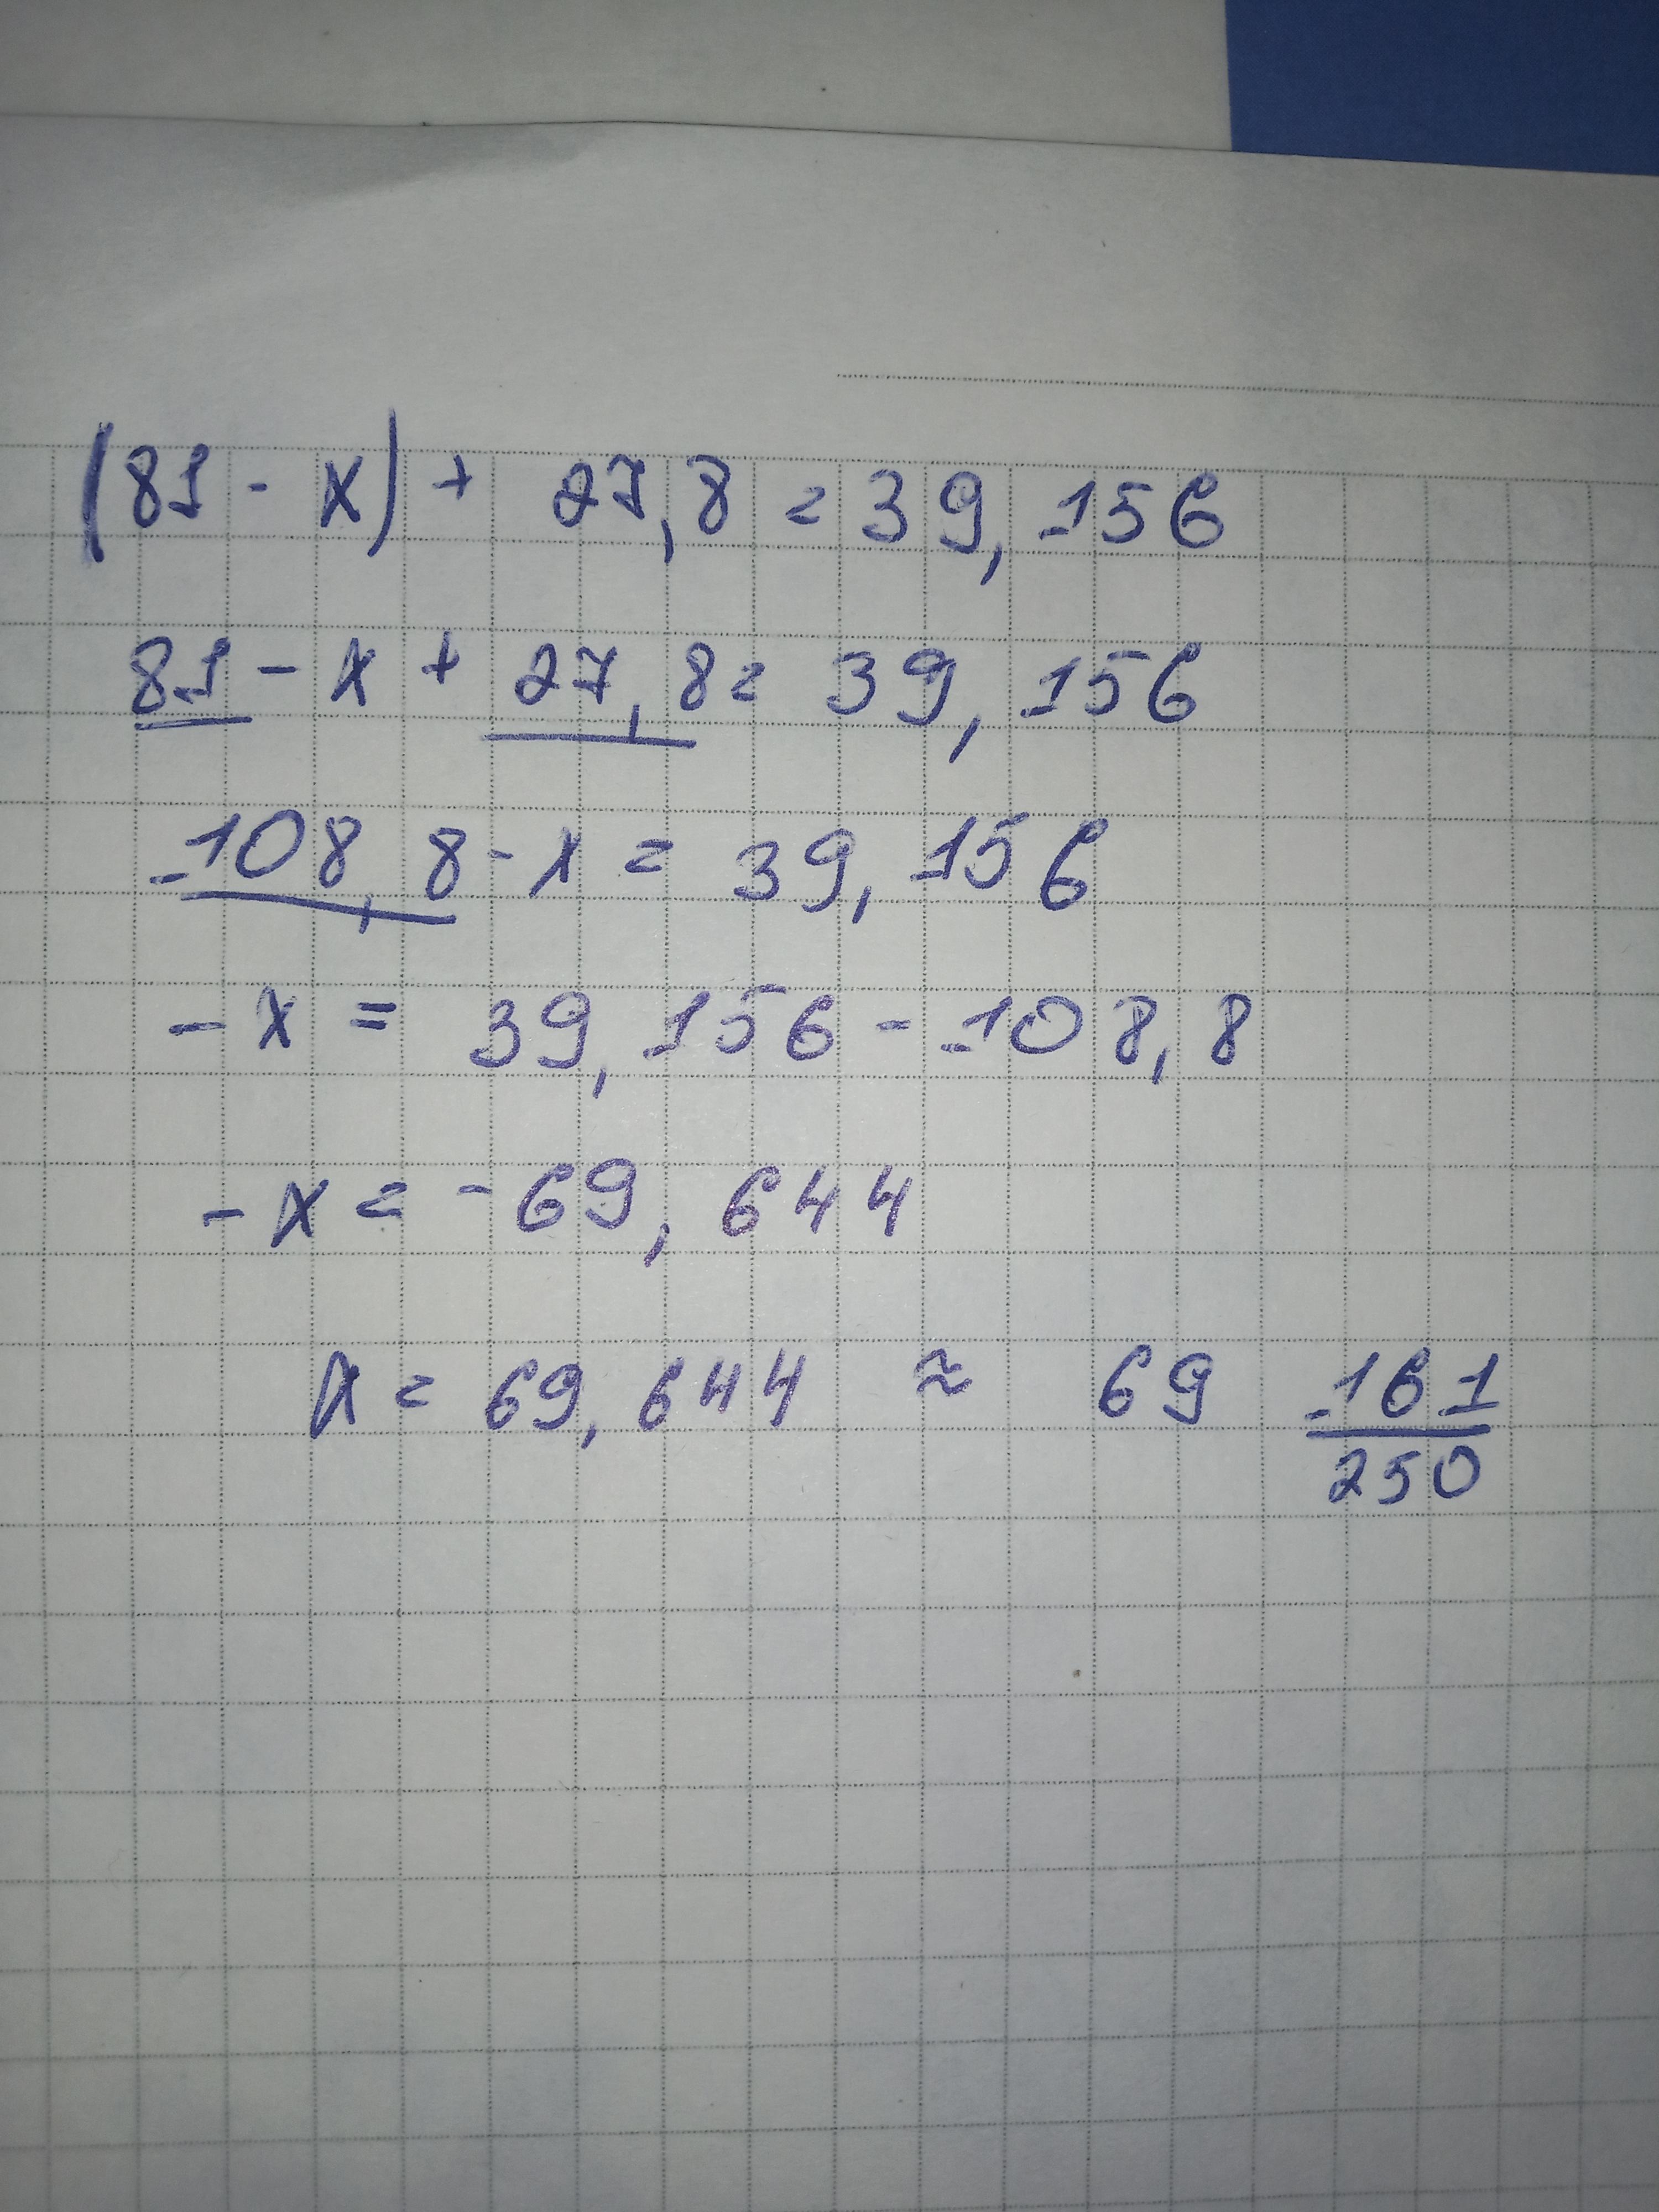 (81 - x) + 27,8 = 39,156
81 - x + 27,8 = 39,156
108,8 - x = 39,156
- x = 39,156 - 108,8
- x = - 69,644
x = 69,644 ≈ 69 161/250